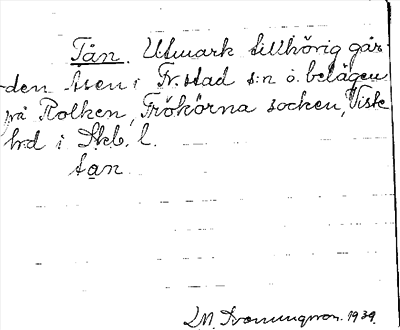 Tån. Utmark tillhörig går-
den Åsen i Fr.stad s:n o. belägen
på Rolken, Frökörna socken, Viste
hrd i Skb. l.
tan
1939